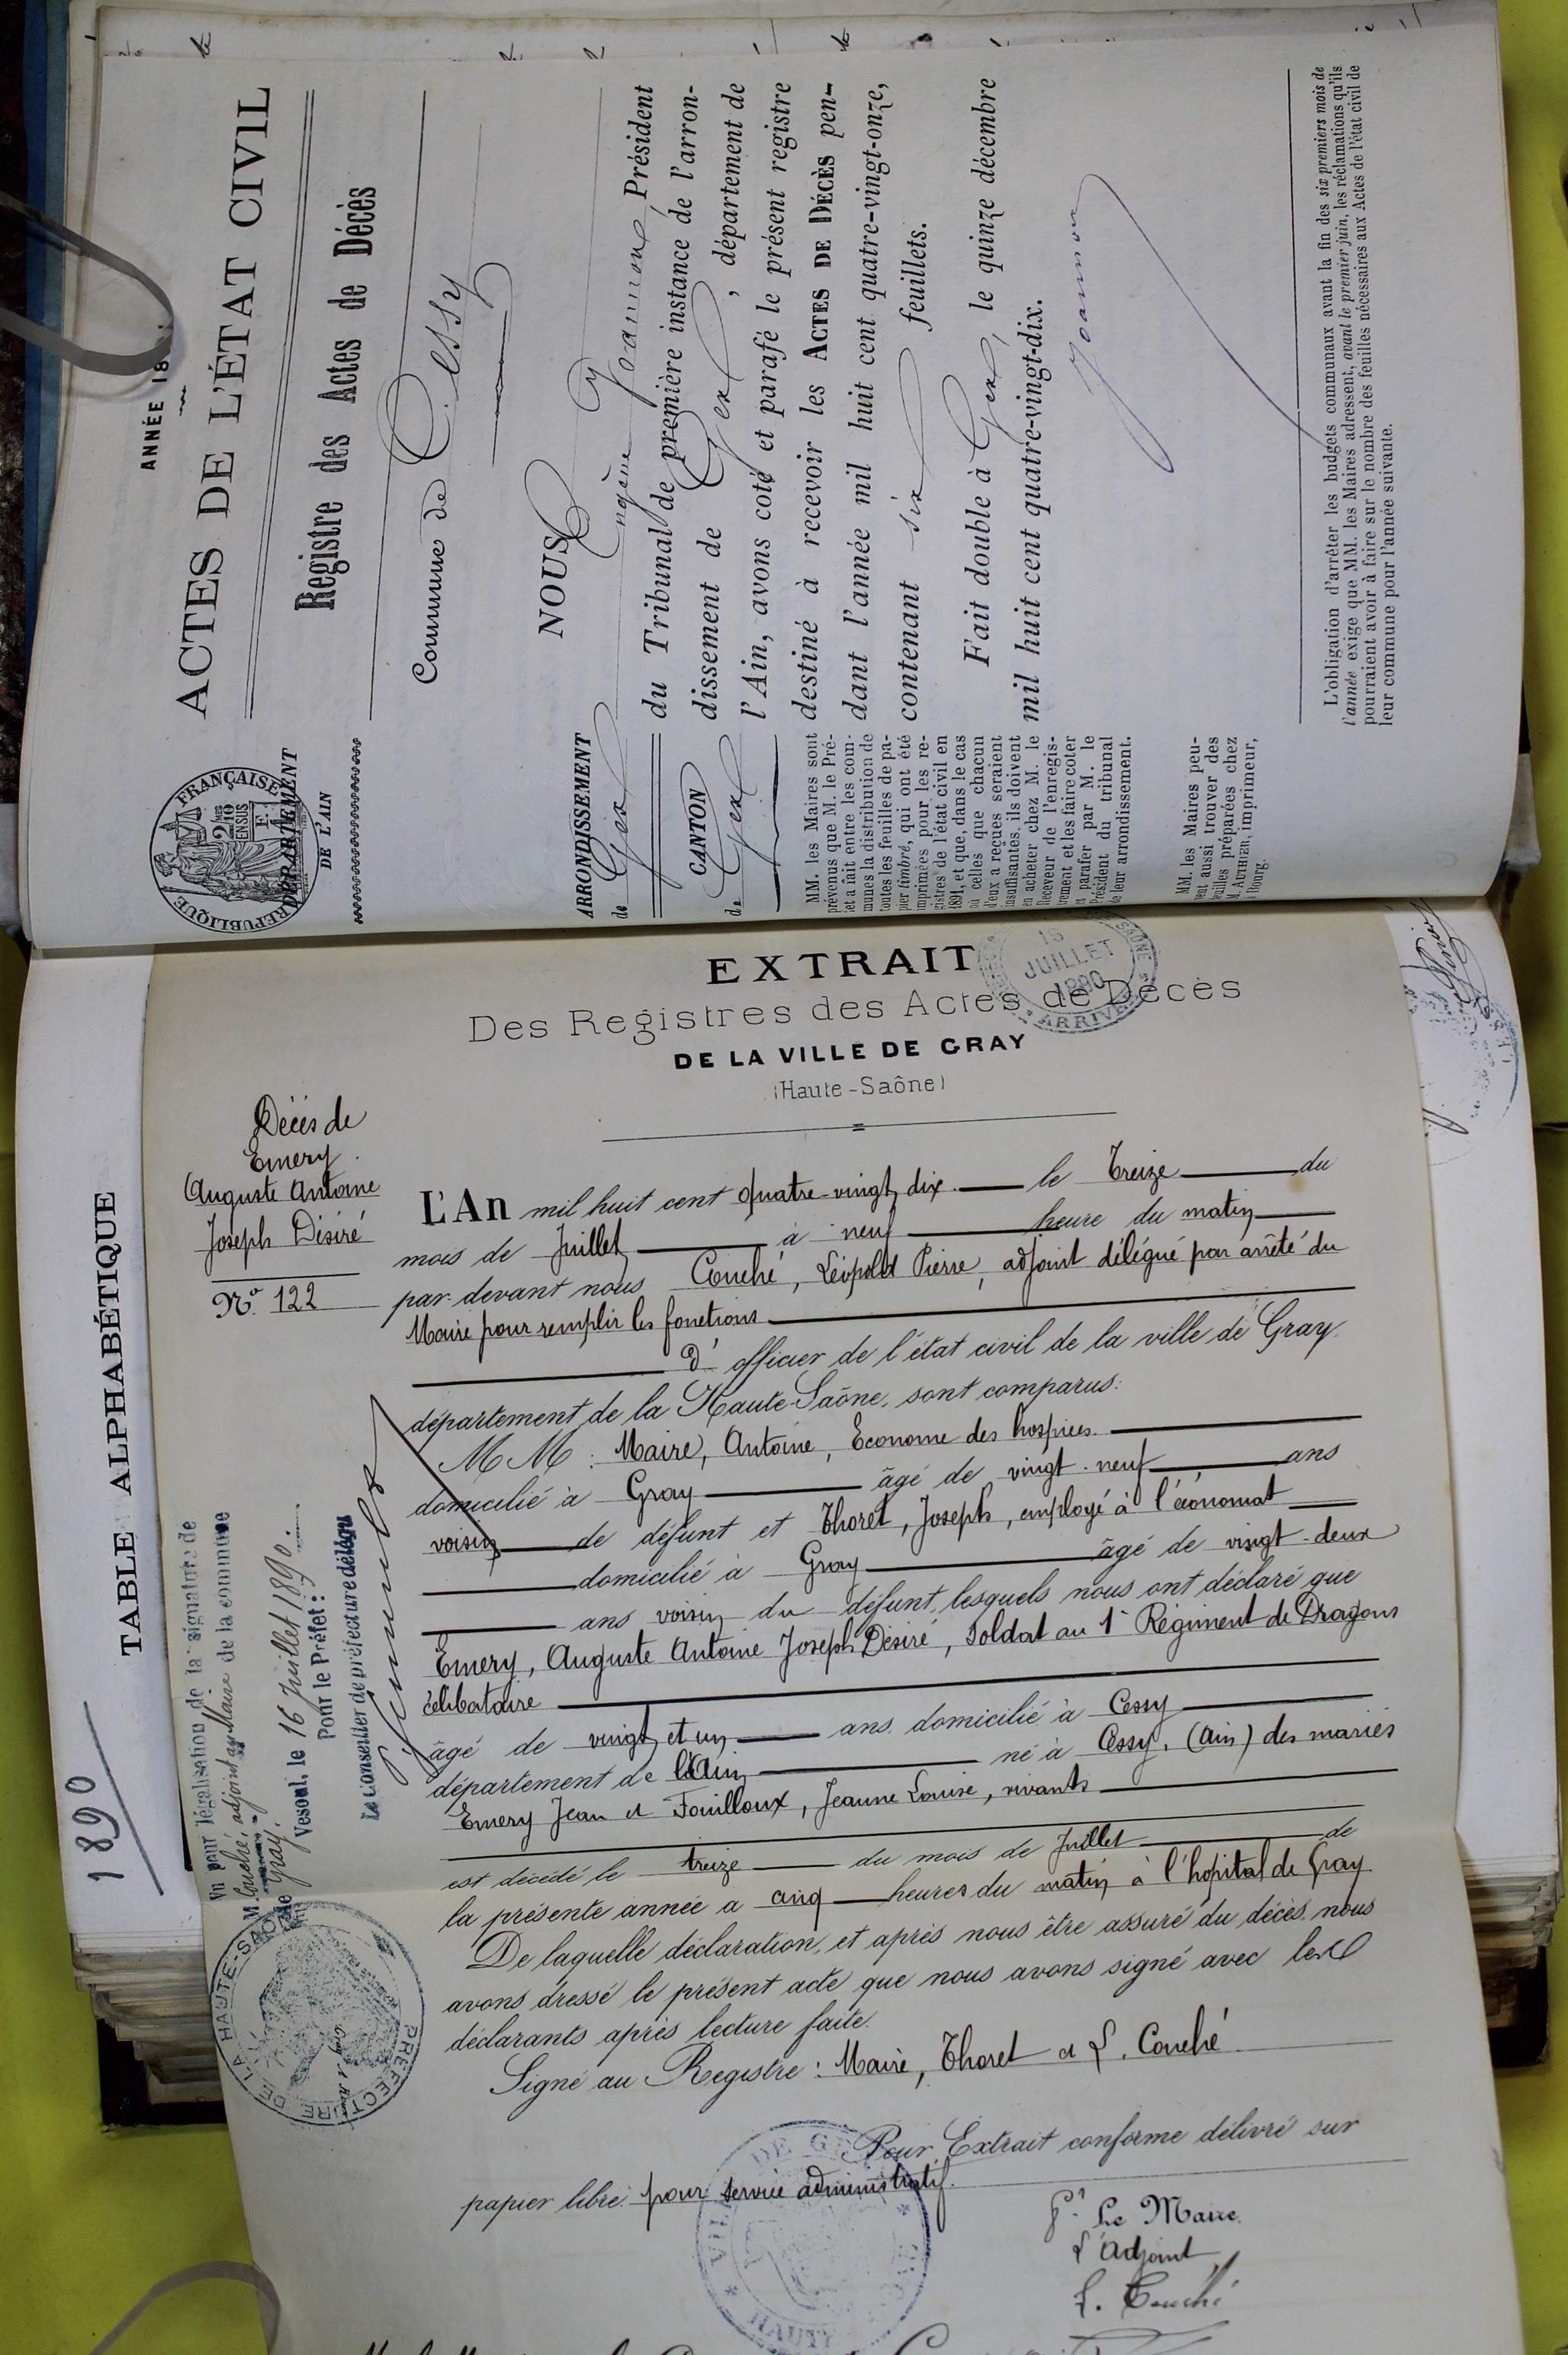 ANNÉE 18
ACTES DE L'ÉTAT CIVIL
Registre des Actes de Décès
Commune de Cessy
RÉPUBLIQUE FRANÇAISE
2/10
EN SUS
DÉPARTEMENT
DE L'AIN
ARRONDISSEMENT
de Gex
CANTON
de Gex
MM. les Maires sont
prévenus que M. le Pré-
fet a fait entre les com-
munes la distribution de
toutes les feuilles de pa-
pier timbré, qui ont été
imprimées pour les re-
gistres de l'état civil en
1891, et que, dans le cas
où celles que chacun
d'eux a reçues seraient
insuffisantes, ils doivent
en acheter chez M. le
Receveur de l'enregis-
trement et les faire coter
et parafer par M. le
Président du tribunal
de leur arrondissement.
MM. les Maires peu-
vent aussi trouver des
feuilles préparées chez
M. AUTHIER, imprimeur,
à Bourg.
NOUS Eugène Joannon, Président
du Tribunal de première instance de l'arron-
dissement de Gex, département de
l'Ain, avons coté et parafé le présent registre
destiné à recevoir les ACTES DE DÉCÈS pen-
dant l'année mil huit cent quatre-vingt-onze,
contenant six feuillets.
Fait double à Gex, le quinze décembre
mil huit cent quatre-vingt-dix.
Joannon
L'obligation d'arrêter les budgets communaux avant la fin des six premiers mois de
l'année exige que MM. les Maires adressent, avant le premier juin, les réclamations qu'ils
pourraient avoir à faire sur le nombre des feuilles nécessaires aux Actes de l'état civil de
leur commune pour l'année suivante.
TABLE ALPHABÉTIQUE
1890
EXTRAIT
15
JUILLET
1890
ARRIVÉE
Des Registres des Actes de Décès
DE LA VILLE DE GRAY
(Haute-Saône)
Décès de
Emery
Auguste Antoine
Joseph Désiré
N° 122
L'An mil huit cent quatre-vingt dix le treize du
mois de Juillet à neuf heure du matin
par devant nous Couché, Léopold Pierre, adjoint délégué par arrêté du
Maire pour remplir les fonctions
D' officier de l'état civil de la ville de Gray.
département de la Haute-Saône, sont comparus:
MM: Maire, Antoine, Econome des hospices
domicilié à Gray âgé de vingt-neuf ans
voisin de défunt et Thoret, Joseph, employé à l'économat
domicilié à Gray âgé de vingt-deux
ans voisin du défunt, lesquels nous ont déclaré que
Emery, Auguste Antoine Joseph Désiré, Soldat au 1er Régiment de Dragons
célibataire
âgé de vingt et un ans domicilié à Cessy
département de l'Ain né à Cessy, (Ain) des mariés
Emery Jean et Fouilloux, Jeanne Louise, vivants
est décédé le treize du mois de Juillet de
la présente année à cinq heures du matin à l'hopital de Gray.
De laquelle déclaration, et après nous être assuré du décès, nous
avons dressé le présent acte que nous avons signé avec les
déclarants après lecture faite.
Signé au Registre: Maire, Thoret et L. Couché
Pour Extrait conforme délivré sur
papier libre pour service administratif.
Pr Le Maire
L'Adjoint
L. Couché
Vu pour légalisation de la signature de
M. Couché, adjoint au Maire de la commune
de Gray.
Vesoul, le 16 Juillet 1890
Pour le Préfet:
Le Conseiller de préfecture délégué
PRÉFECTURE DE LA HAUTE-SAÔNE